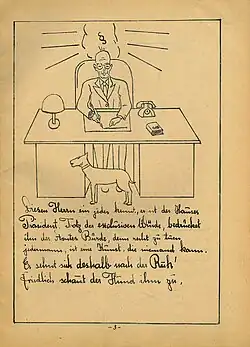 §
Diesen Herrn ein jeder kennt, es ist der Hauses
Präsident. Trotz der exclusiven Würde, bedrücket
ihn des Amtes Bürde, denn recht zu tuen
jedermann, ist eine Kunst, die niemand kann.
Er sehnt sich deshalb nach der Ruh!
Friedlich schaut der Hund ihm zu.
- 3 -